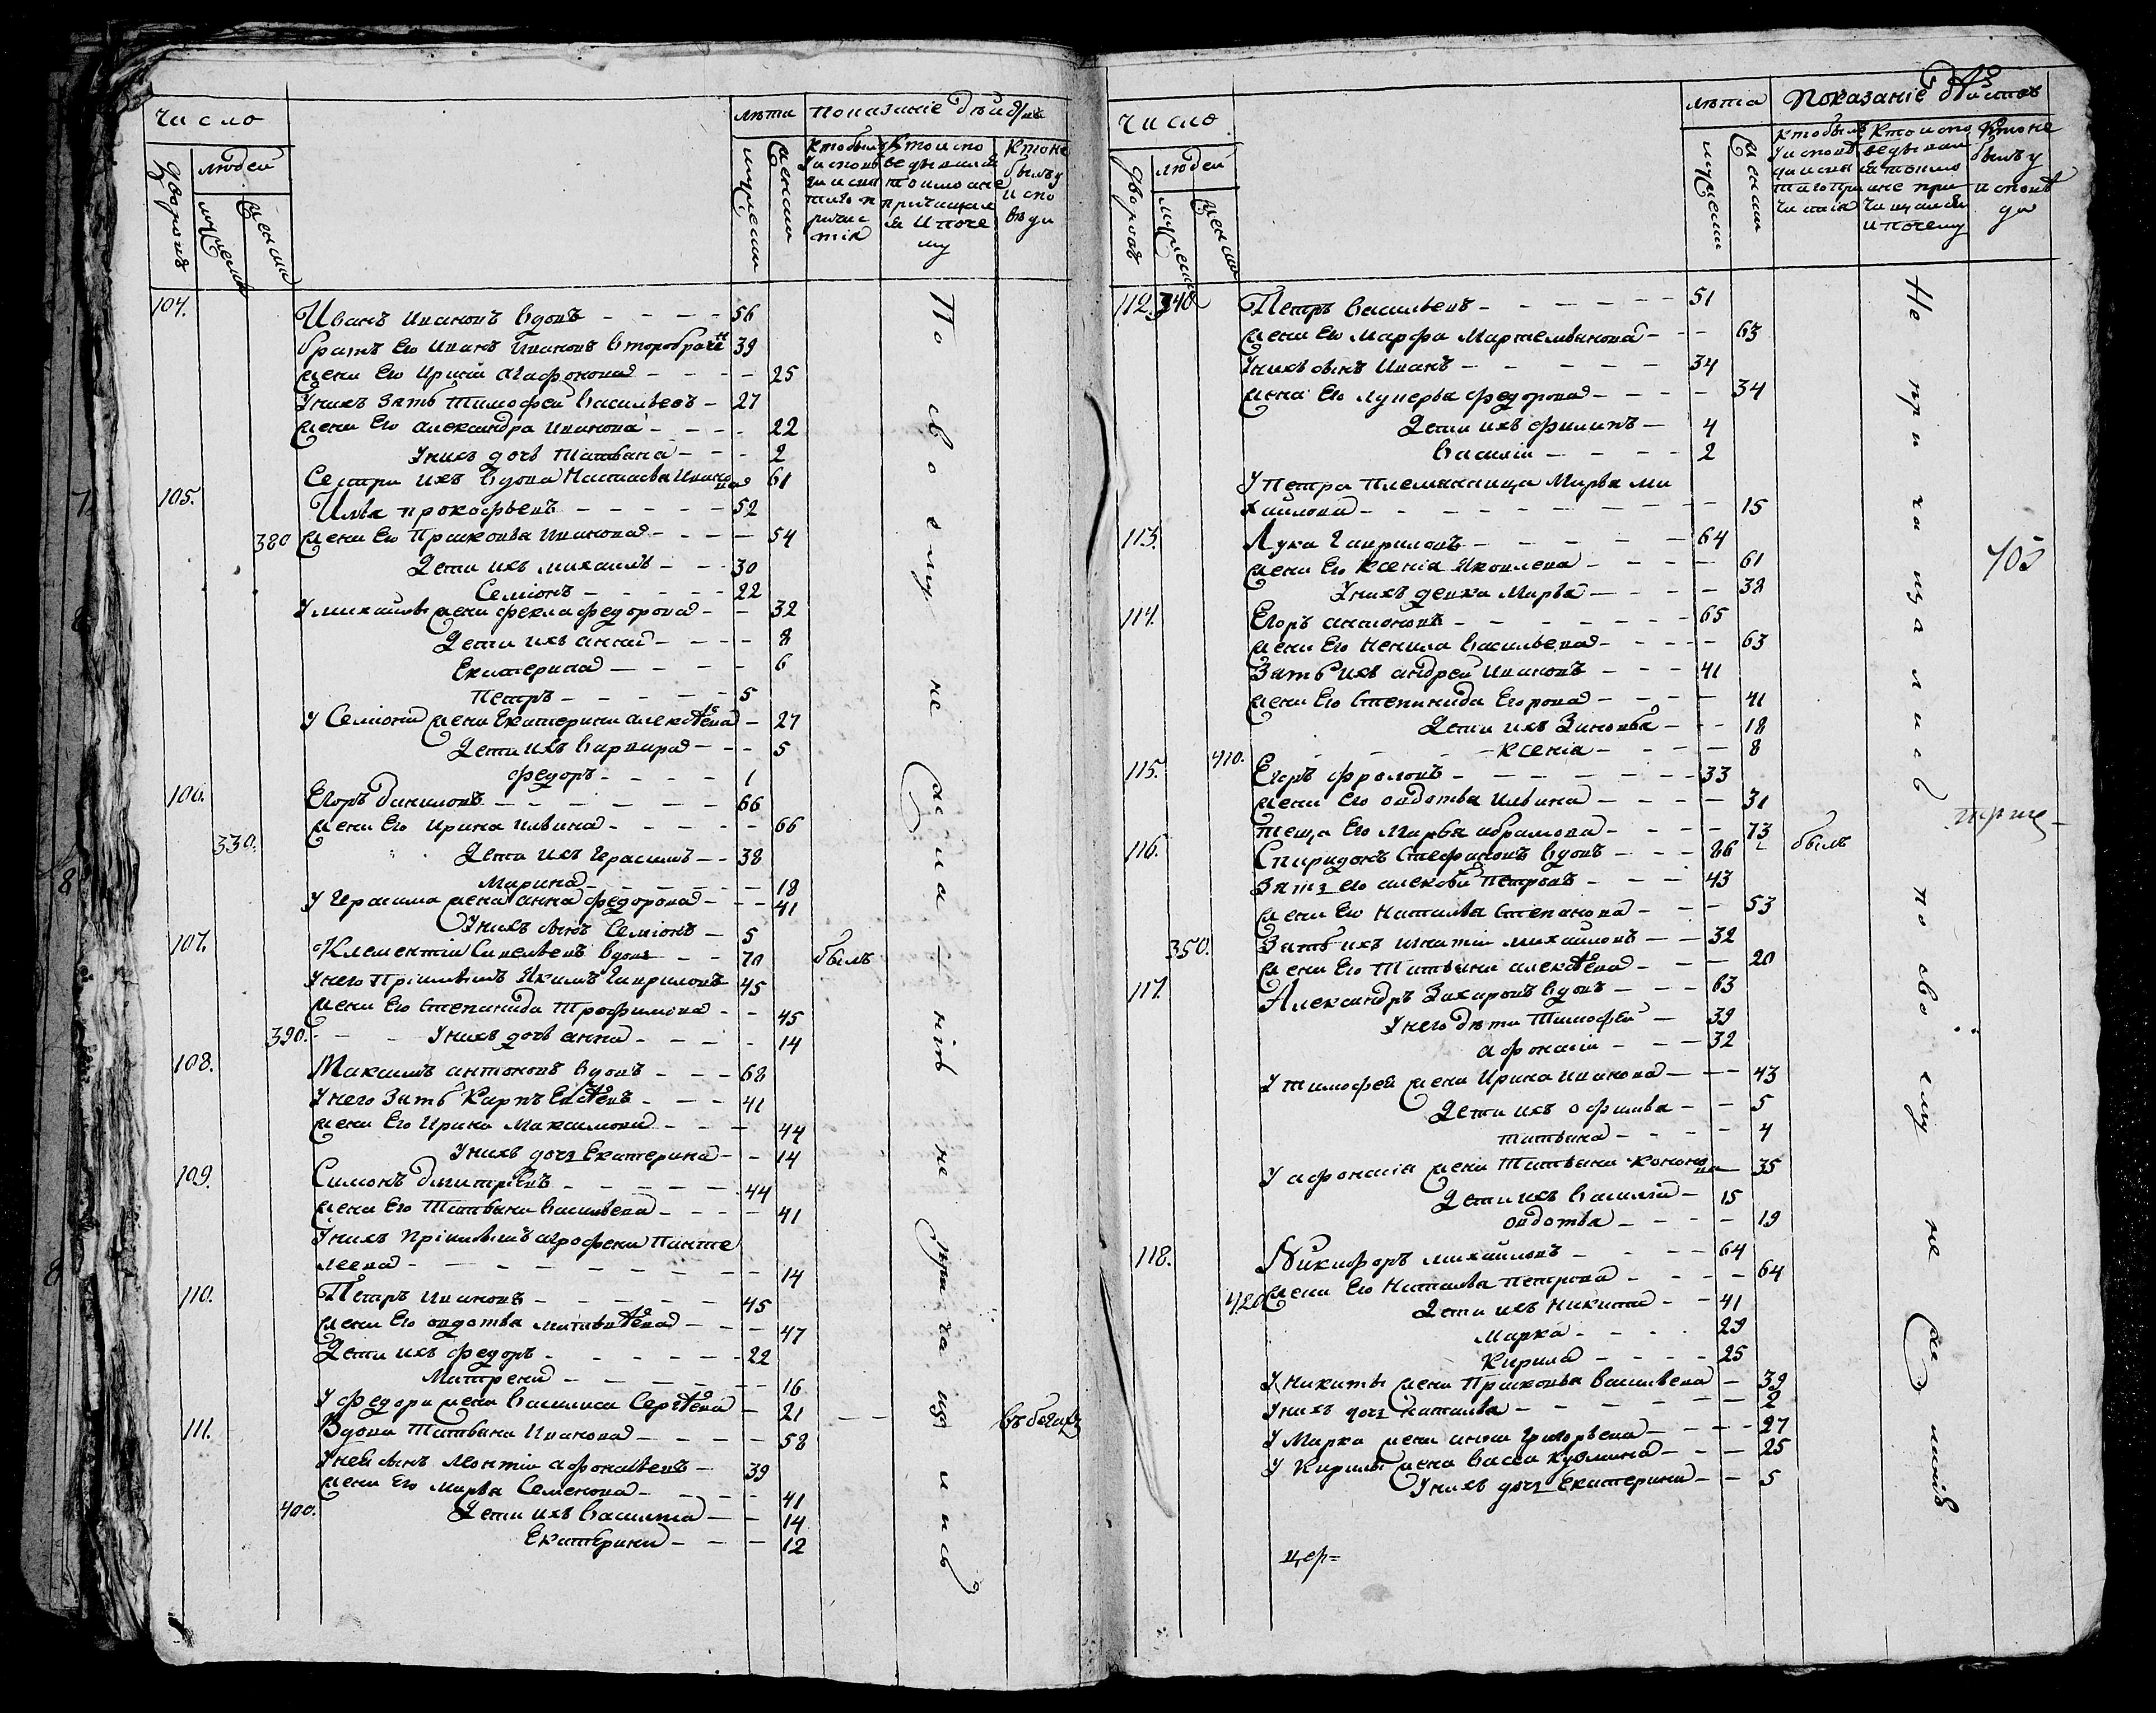 Число
людей
дворовъ
мужеска
женска
лѣта
мужески
женски
показанiе
кто не
былъ у
испо
вѣди
104. Иванъ Ивановъ вдовъ - - - - 56
братъ Его Иванъ Ивановъ второбрач 39
жена Его Ирина Агафонова - - - - 25
У нихъ зять Тимофей Васильевъ - 27
жена Его Александра Иванова - - - - 22
У нихъ дочь Татьяна - - - 2
Сестра ихъ вдова Настасья Иванова 61
105. Илья Прокофьевъ - - - - - 52
380 жена Его Прасковья Иванова - - - - 54
Дети ихъ Михаилъ - - - 30
Семiонъ - - - - - 22
У Михайлы жена Фекла Федорова - - 32
Дети ихъ Анна - - - - 8
Екатерина - - - - 6
Петръ - - - - - 5
У Семiона жена Екатерина Алексѣева - 27
Дети ихъ Варвара - - - 5
Федоръ - - - - 1
106. Егоръ Даниловъ - - - - - - 66
жена Его Ирина Ильина - - - - - 66
330. Дети ихъ Герасимъ - - 38
Марина - - - - - - 18
У Герасима жена Анна Федорова - - - 41
У нихъ сынъ Семiонъ - 5
107. Клементiй Савельевъ вдовъ - - 70 былъ
У него прiимышъ Якимъ Гавриловъ 45
жена Его Степанида Трофимова - - 45
390. - - - У нихъ дочь Анна - - - - - 14
108. Максимъ Антоновъ вдовъ - - - 68
У него зять Карпъ Евсѣевъ - - - 41
жена Его Ирина Максимова - - - 44
У нихъ дочь Екатерина - - 14
109. Симонъ Дмитрiевъ - - - - - 44
жена Его Татьяна Васильева - - - - 41
У нихъ прiимышъ Агрофена Панте
леева - - - - - - - - 14
110. Петръ Ивановъ - - - - - 45
жена Его Овдотья Матвѣева - - - 47
Дети ихъ Федоръ - - - - - 22
Матрена - - - - - - 16
У Федора жена Василиса Сергѣева - 21 - - въ бегахъ
111. Вдова Татьяна Иванова - - - - - 58
У ней сынъ Леонтiй Афонасьевъ - 39
жена Его Марья Семенова - - - - 41
400. Дети ихъ Василиса - - 14
Екатерина - - - 12
По своему не желанiю не причащались
Число
людей
дворовъ
мужеска
женска
лѣта
мужески
женски
Показанiе
112. 340 Петръ Васильевъ - - - - - - 51
жена Его Марфа Мартемьянова - - - 63
У нихъ сынъ Иванъ - - - - - 34
жена Его Лукерья Федорова - - - - - 34
Дети ихъ Филипъ - 4
Василiй - - - - - 2
У Петра племянница Марья Ми
хайлова - - - - - - - - - 15
113. Лука Гавриловъ - - - - - 64
жена Его Ксенiя Яковлева - - - - 61
У нихъ девка Марья - - - - 38
114. Егоръ Антоновъ - - - - - - - 65
жена Его Ненила Васильева - - - - - 63
Зять ихъ Андрей Ивановъ - - - 41
жена Его Степанида Егорова - - - - 41
Дети ихъ Зиновья - - - 18
410. - - - - Ксенiя - - - - 8
115. Егоръ Фроловъ - - - - - - - 33
жена Его Овдотья Ильина - - - - 31
теща Его Марья Абрамова - - - - 73
116. Спиридонъ Стефановъ вдовъ - - - 86 былъ
Зять его Алексѣй Петровъ - - - 43
жена Его Наталья Степанова - - - 53
350. Зять ихъ Игнатiй Михайловъ - - 32
жена Его Татьяна Алексѣева - - - 20
117. Александръ Захаровъ вдовъ - - - 63
У него дѣти Тимофей - 39
Афонасiй - - - 32
У Тимофея жена Ирина Иванова - - - 43
Дети ихъ Офимья - - 5
Татьяна - - - - 4
У Афонасiя жена Татьяна Кононова - 35
Дети ихъ Василiй - 15
Овдотья - - - - 19
118. Никифоръ Михайловъ - - - - 64
420 жена Его Наталья Петрова - - - - 64
Дети ихъ Никита - - 41
Марка - - - - 29
Кирила - - - - 25
У Никиты жена Прасковья Васильева - 39
У нихъ дочь Наталья - - - - - - 2
У Марка жена Анна Григорьева - - - - 27
У Кирилы жена Васса Кузмина - - - 25
У нихъ дочь Екатерина - - 5
Не причащались по своему не желанiю
405
цер=